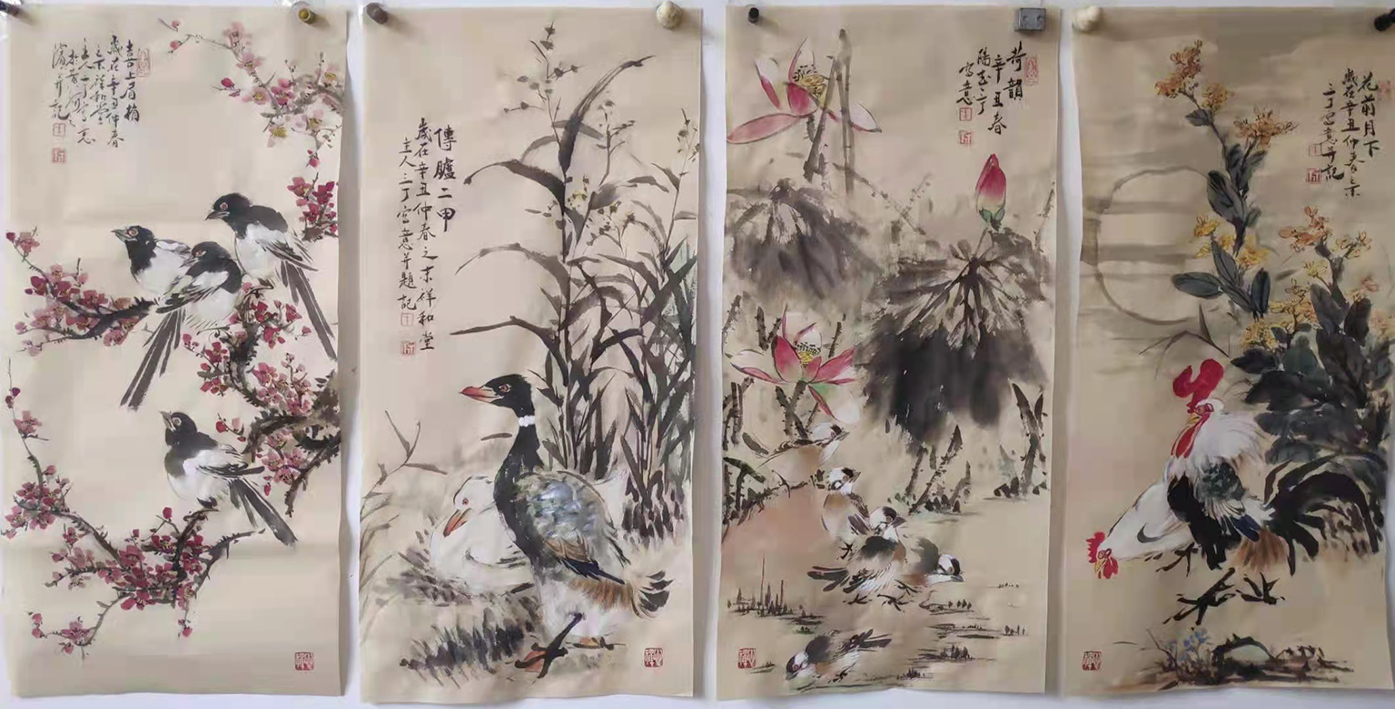 喜上眉梢
歲在辛丑仲春
之末祥和堂
主人二丁寫意
并記
傳臚二甲
歲在辛丑仲春之末祥和堂
主人二丁寫意并題記
荷韻
辛丑春
二丁
寫意
花前月下
歲在辛丑仲春之末
二丁寫意并記